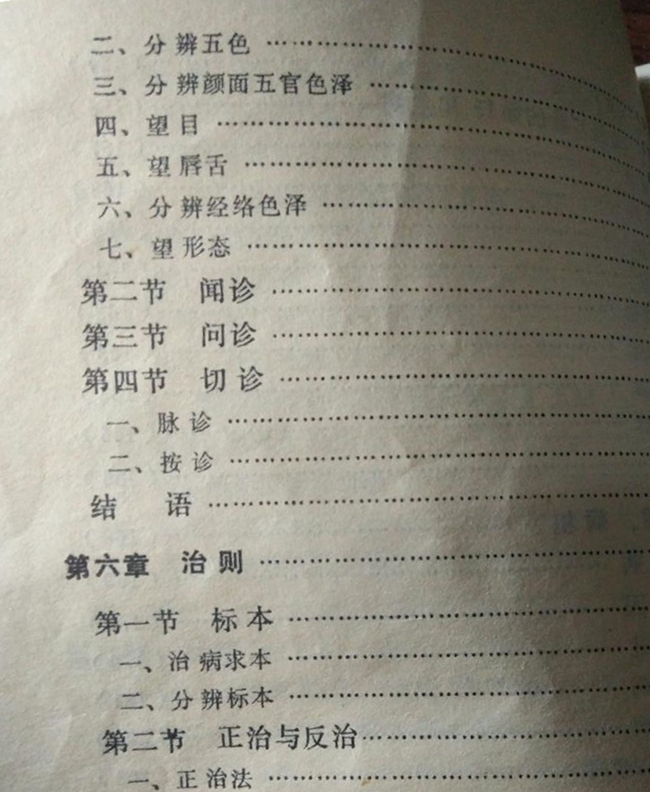 二、分辨五色……………………
三、分辨颜面五官色泽……………………
四、望目……………………
五、望唇舌……………………
六、分辨经络色泽……………………
七、望形态……………………
第二节 闻诊……………………
第三节 问诊……………………
第四节 切诊……………………
一、脉诊……………………
二、按诊……………………
结 语……………………
第六章 治则……………………
第一节 标本……………………
一、治病求本……………………
二、分辨标本……………………
第二节 正治与反治……………………
一、正治法……………………